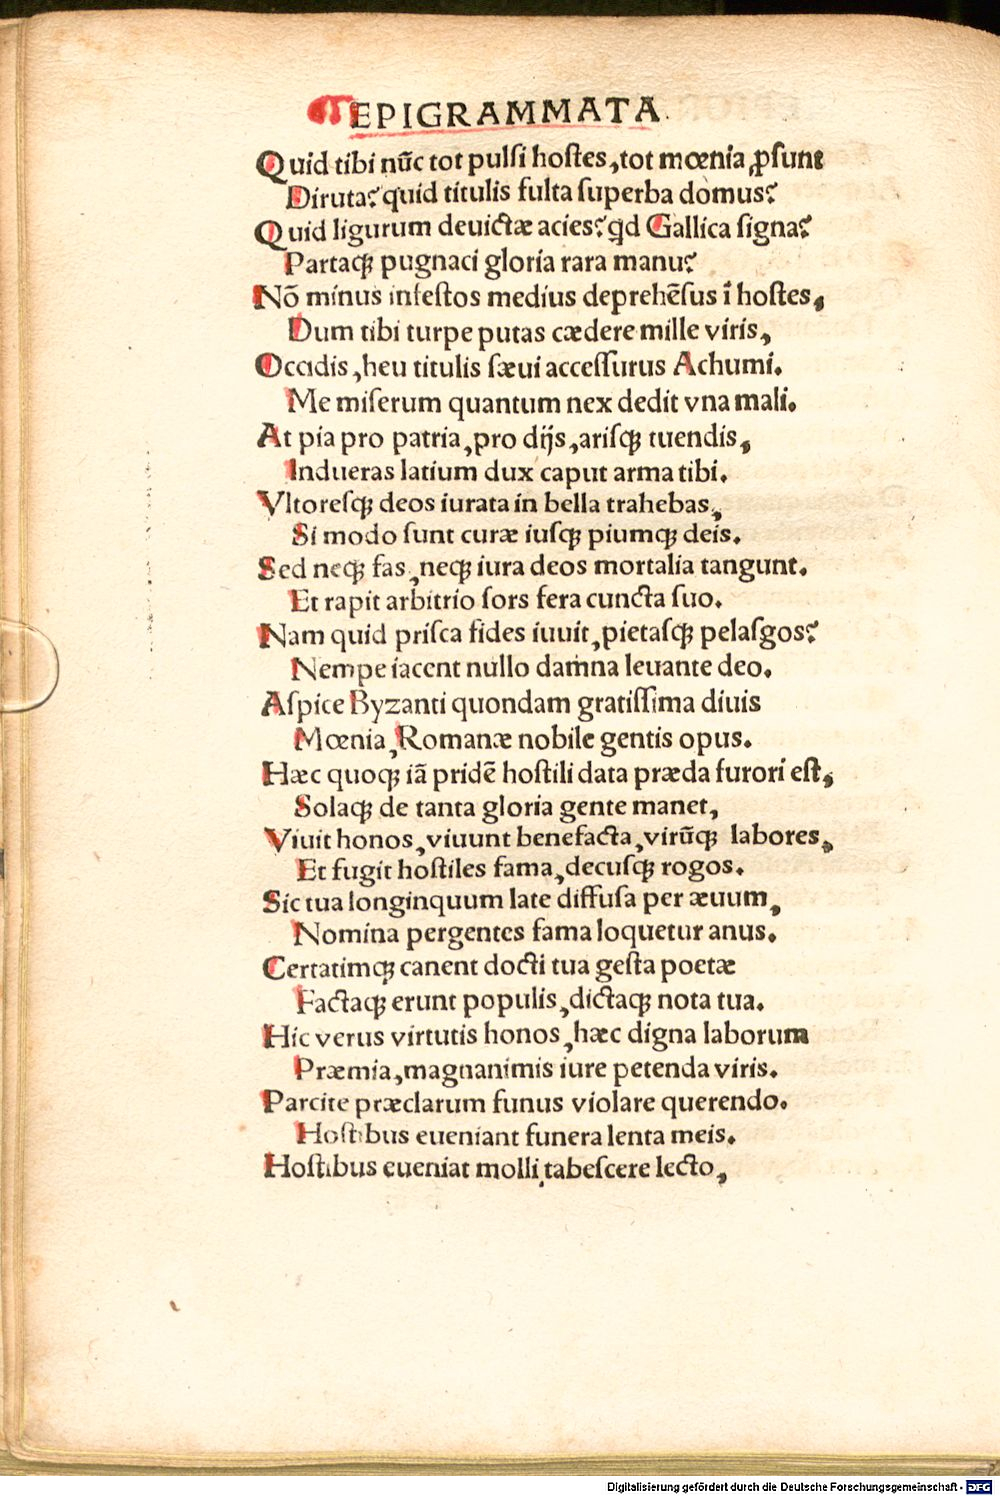 EPIGRAMMATA
Quid tibi nūc tot pulsi hostes, tot mœnia ꝓsunt
Diruta? quid titulis fulta superba domus?
Quid ligurum deuictæ acies? qd Gallica signa?
Partaqꝫ pugnaci gloria rara manu?
Nō minus infestos medius deprehēsus ī hostes,
Dum tibi turpe putas cædere mille viris,
Occidis, heu titulis sæui accessurus Achumi.
Me miserum quantum nex dedit vna mali.
At pia pro patria, pro dijs, arisqꝫ tuendis,
Indueras latium dux caput arma tibi.
Vltoresqꝫ deos iurata in bella trahebas,
Si modo sunt curæ iusqꝫ piumqꝫ deis.
Sed neqꝫ fas, neqꝫ iura deos mortalia tangunt.
Et rapit arbitrio sors fera cuncta suo.
Nam quid prisca fides iuuit, pietasqꝫ pelasgos?
Nempe iacent nullo damna leuante deo.
Aspice Byzanti quondam gratissima diuis
Mœnia, Romanæ nobile gentis opus.
Hæc quoqꝫ iā pridē hostili data præda furori est,
Solaqꝫ de tanta gloria gente manet,
Viuit honos, viuunt benefacta, virūqꝫ labores,
Et fugit hostiles fama, decusqꝫ rogos.
Sic tua longinquum late diffusa per æuum,
Nomina pergentes fama loquetur anus.
Certatimqꝫ canent docti tua gesta poetæ
Factaqꝫ erunt populis, dictaqꝫ nota tua.
Hic verus virtutis honos, hæc digna laborum
Præmia, magnanimis iure petenda viris.
Parcite præclarum funus violare querendo.
Hostibus eueniant funera lenta meis.
Hostibus eueniat molli tabescere lecto,
Digitalisierung gefördert durch die Deutsche Forschungsgemeinschaft - DFG